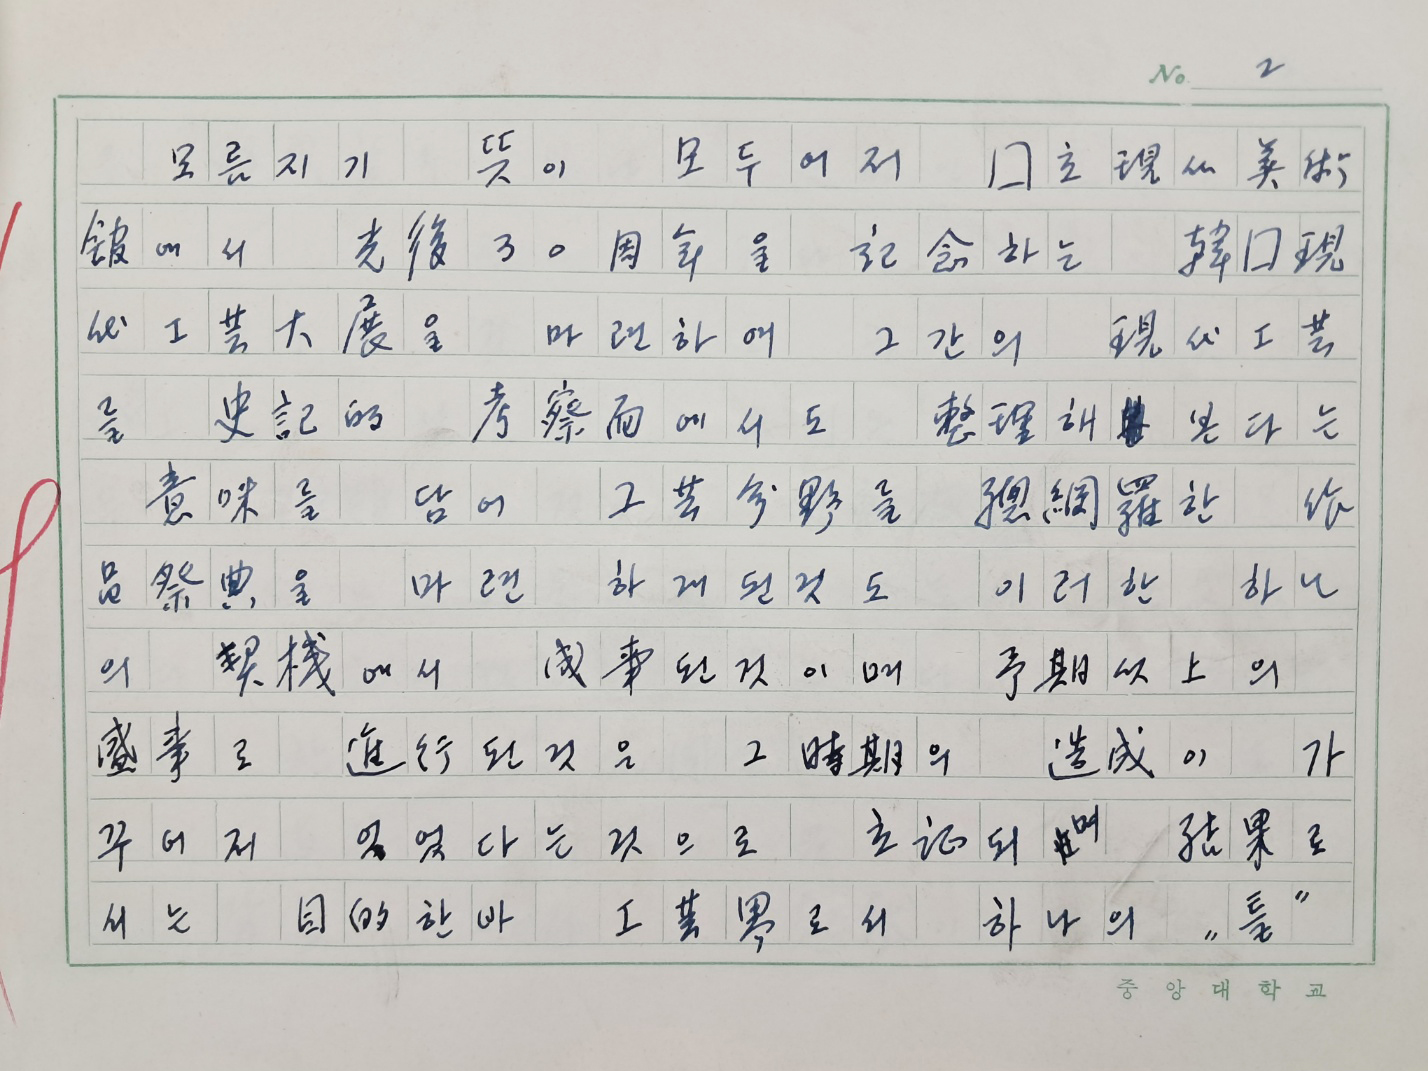 No. 2
모름지기 뜻이 모두어저 囗立現代美術
館에서 光復30周年을 記念하는 韓囗現
代工芸大展을 마련하여 그간의 現代工芸
를 史記的 考察面에서도 整理해 본다는
意味를 담어 그 芸分野를 總網羅한 作
品祭典을 마련 하게된것도 이러한 하나
의 契機에서 成事된것이며 予期以上의
盛事로 進行된것은 그 時期의 造成이 가
꾸어저 있었다는것으로 立証되며 結果로
서는 目的한바 工芸界로서 하나의 "틀"
중앙대학교